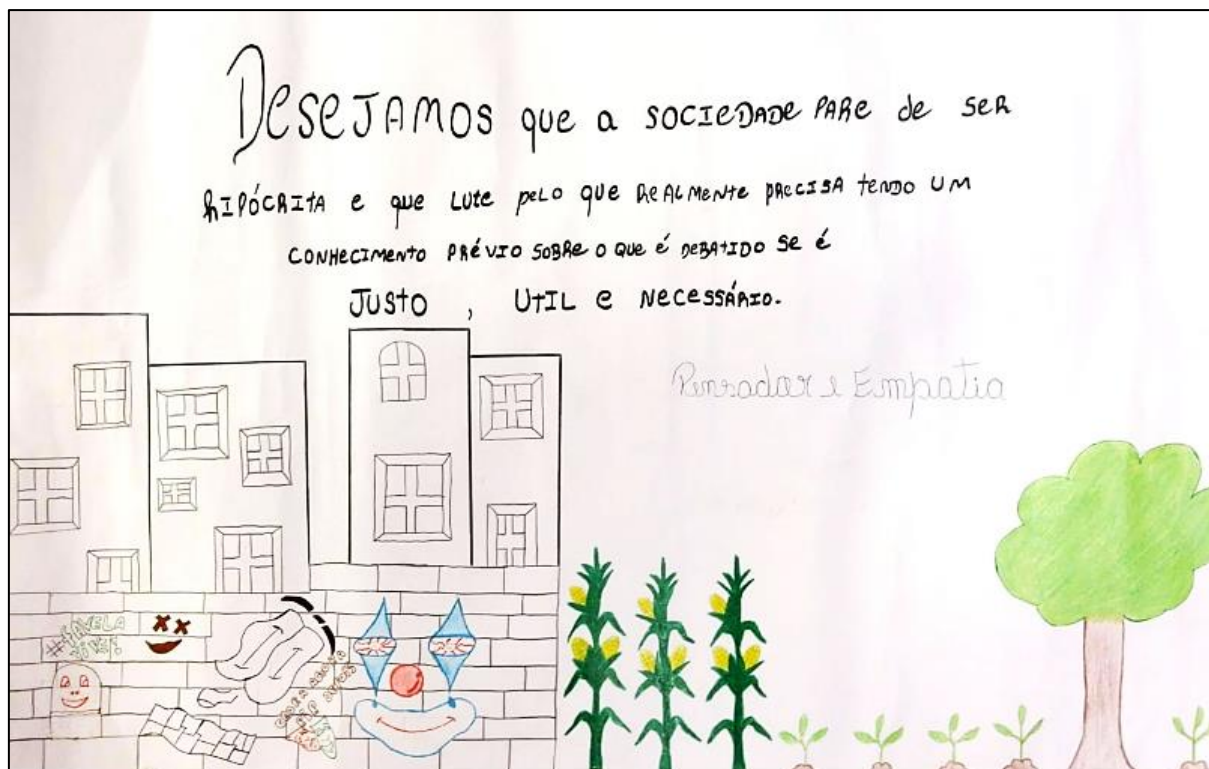 DESEJAMOS que a SOCIEDADE PARE de SER
hIPÓCRITA e que LUTE PELO QUE REALMENTE PRECISA TENDO UM
CONHECIMENTO PRÉVIO SOBRE O QUE É DEBATIDO SE É
JUSTO , UTIL e NECESSÁRIO.
Pensador e Empatia
#FAVELA
VIVE!